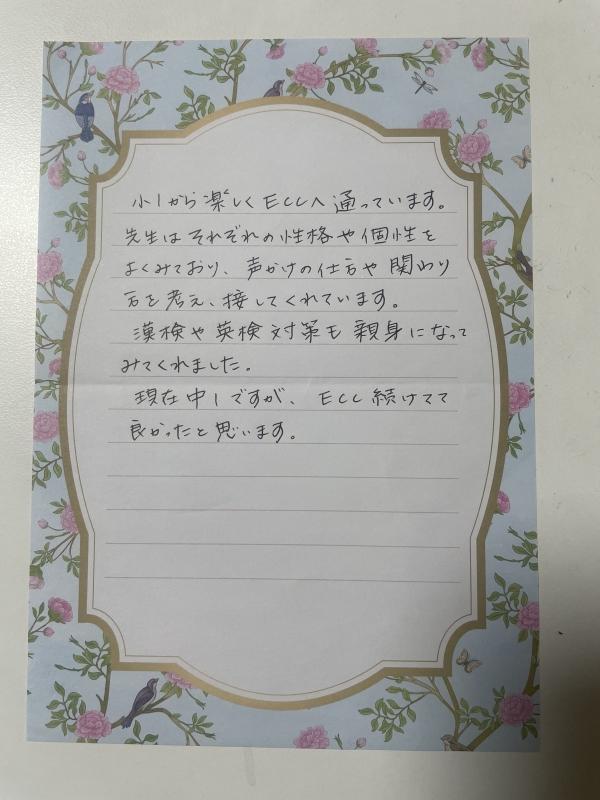 小1から楽しくECCへ通っています。
先生はそれぞれの性格や個性を
よくみており、声かけの仕方や関わり
方を考え、接してくれています。
漢検や英検対策も親身になって
みてくれました。
現在中1ですが、ECC続けてて
良かったと思います。